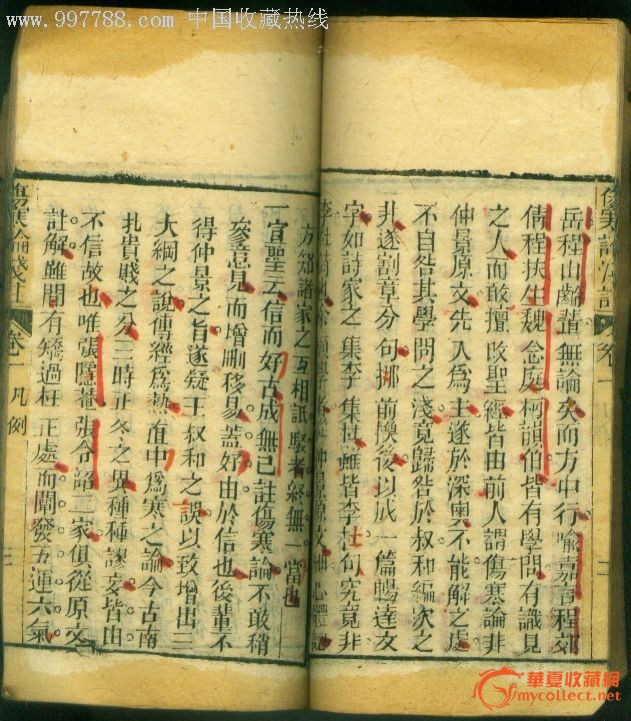 www.997788.com 中国收藏热线
傷寒論淺註
卷一
二
岳程山齡輩無論矣而方中行喻嘉言程郊
倩程扶生魏念庭柯韻伯皆有學問有識見
之人而敢擅改聖經皆由前人謂傷寒論非
仲景原文先入爲主遂於深奧不能解之處
不自咎其學問之淺竟歸咎於叔和編次之
非遂割章分句挪前換後以成一篇暢達文
字如詩家之集李集杜雖皆李杜句究竟非
方知諸家之互相詆駁者終無一當也
一宣聖云信而好古成無己註傷寒論不敢稍
參意見而增刪移易蓋好由於信也後輩不
得仲景之旨遂疑王叔和之誤以致增出三
大綱之說傳經爲熱直中爲寒之論今古南
北貴賤之分三時正冬之異種種謬妄皆由
不信故也唯張隱菴張令韶二家俱從原文
註解雖間有矯過枉正處而闡發五運六氣
傷寒論淺註
卷一 凡例
三
華夏收藏網
mycollect.net